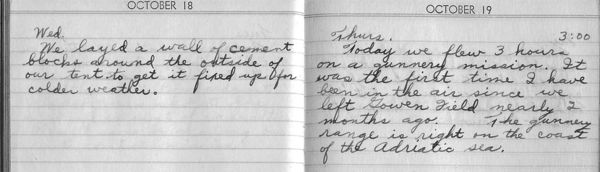 OCTOBER 18
Wed.
We layed a wall of cement
blocks around the outside of
our tent to get it fixed up for
colder weather.
OCTOBER 19
Thurs. 3:00
Today we flew 3 hours
on a gunnery mission. It
was the first time I have
been in the air since we
left Gowen Field nearly 2
months ago. The gunnery
range is right on the coast
of the Adriatic sea.